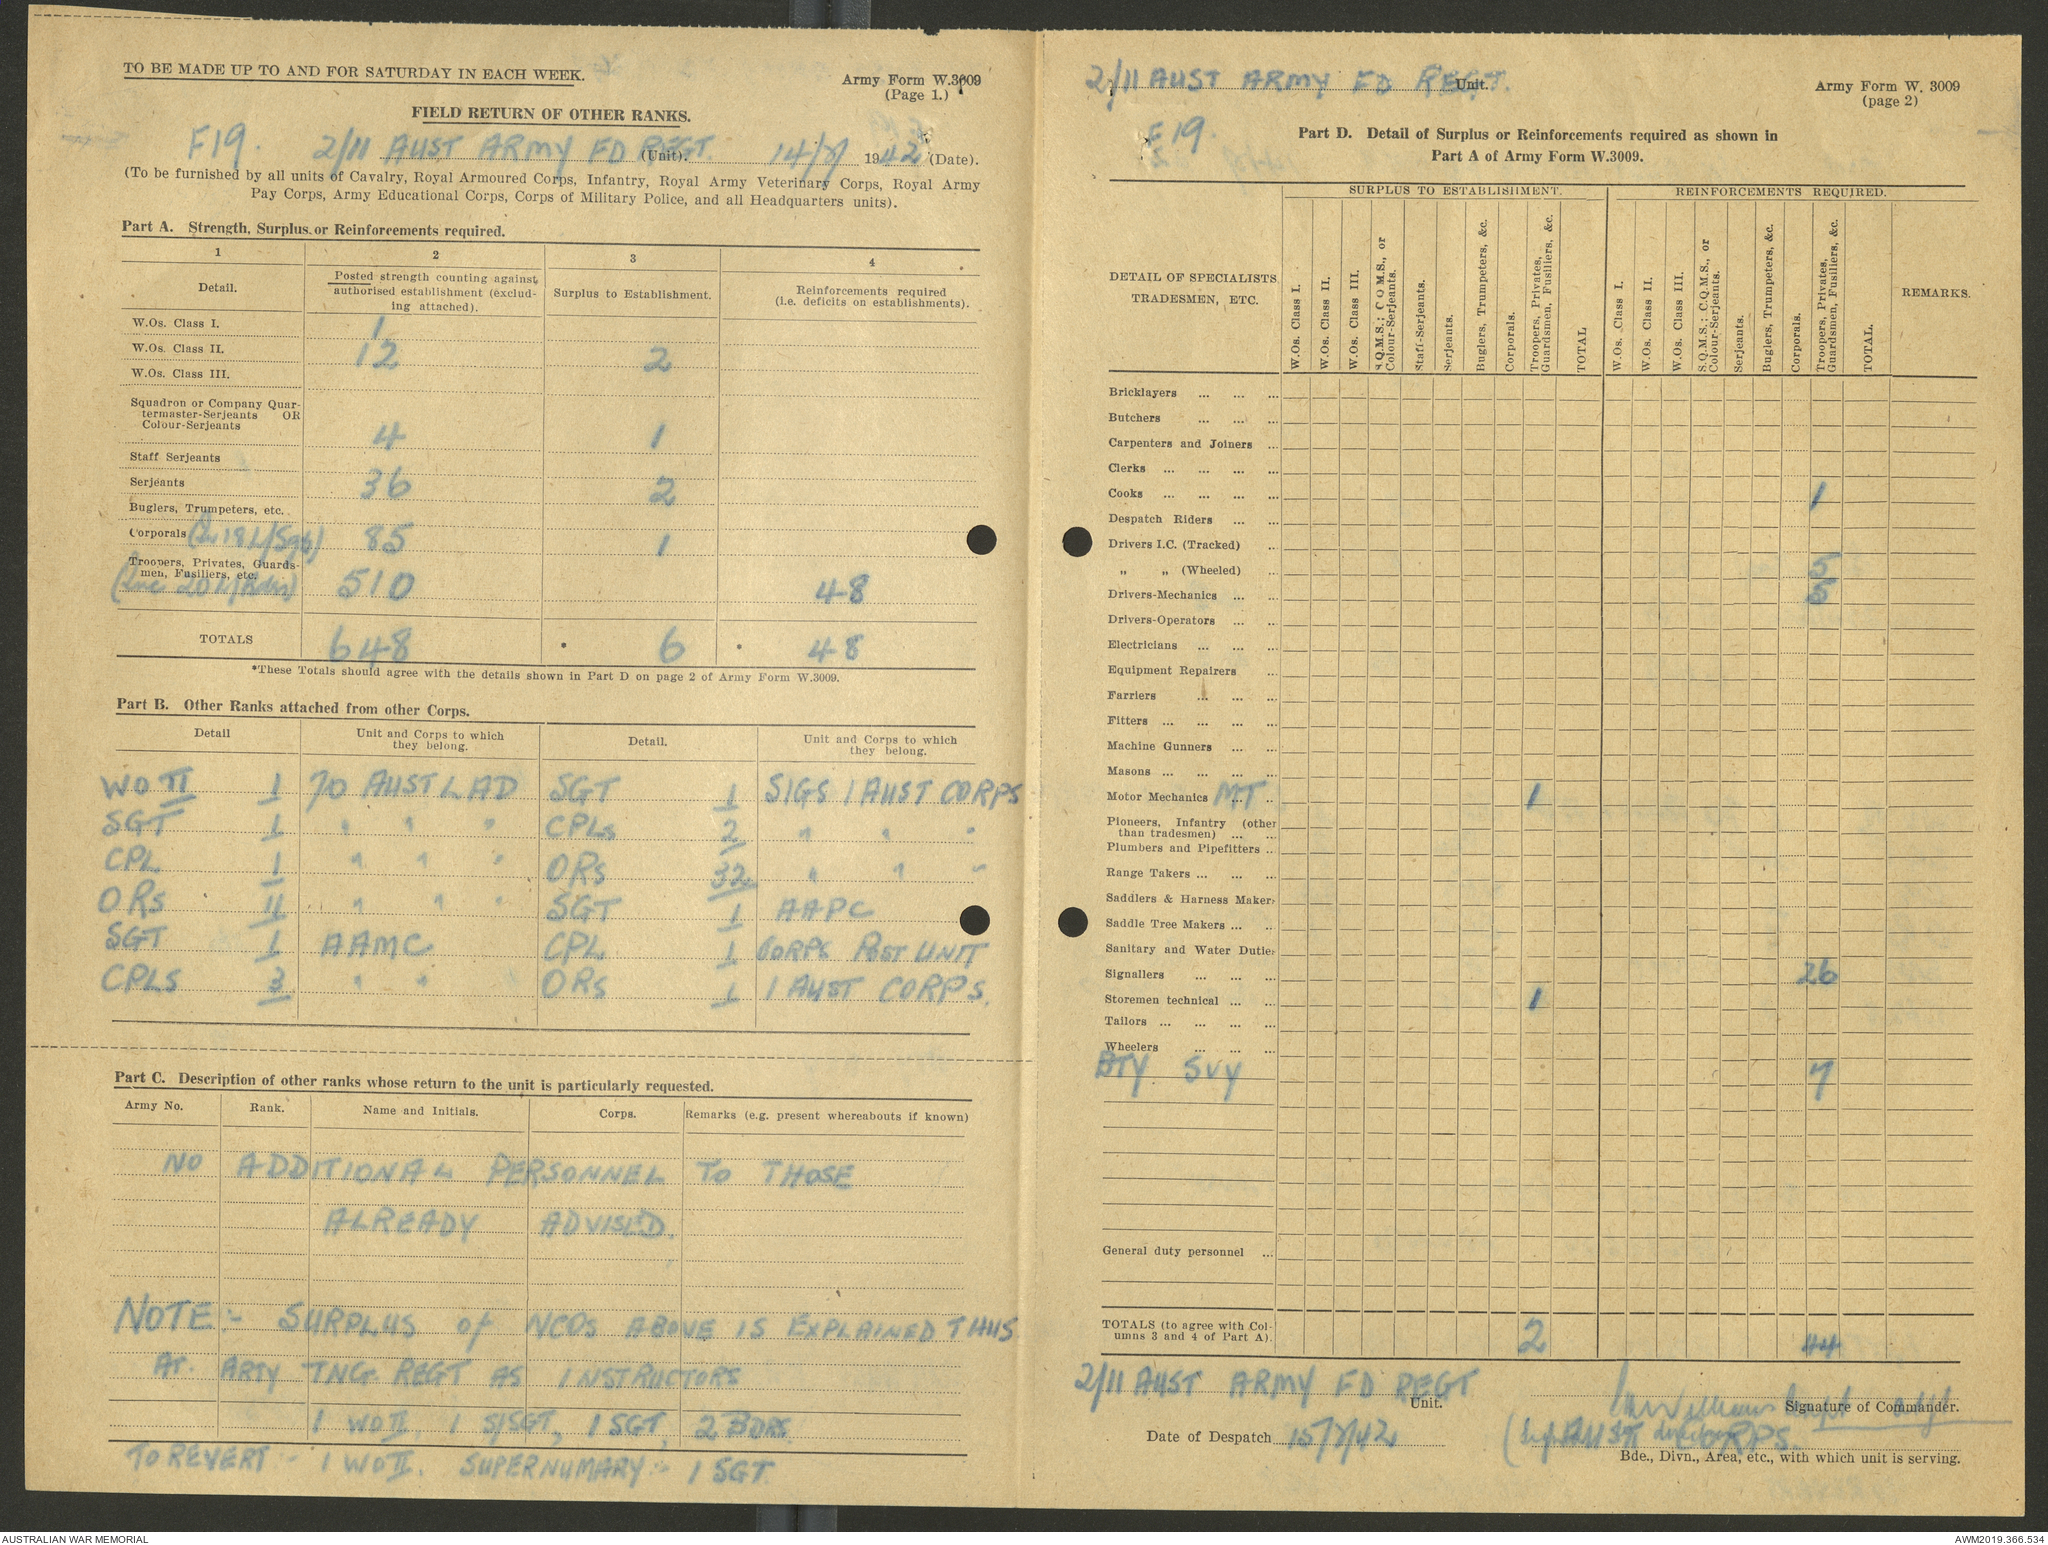 TO BE MADE UP TO AND FOR SATURDAY IN EACH WEEK.
Army Form W.3009
(Page 1.)
FIELD RETURN OF OTHER RANKS.
F19. 2/11 AUST ARMY FD REGT. (Unit). 14/7/ 1942 (Date).
(To be furnished by all units of Cavalry, Royal Armoured Corps, Infantry, Royal Army Veterinary Corps, Royal Army
Pay Corps, Army Educational Corps, Corps of Military Police, and all Headquarters units).
Part A. Strength, Surplus or Reinforcements required.
1 2 3 4
Detail.
Posted strength counting against
authorised establishment (exclud-
ing attached).
Surplus to Establishment.
Reinforcements required
(i.e. deficits on establishments).
W.Os. Class I. 1
W.Os. Class II. 12 2
W.Os. Class III.
Squadron or Company Quar-
termaster-Serjeants OR
Colour-Serjeants 4 1
Staff Serjeants
Serjeants 36 2
Buglers, Trumpeters, etc.
Corporals (In 18 L/Sgts) 85 1
Troopers, Privates, Guards-
men, Fusiliers, etc.
(Inc 20 L/Bdrs) 510 48
TOTALS 648 * 6 * 48
*These Totals should agree with the details shown in Part D on page 2 of Army Form W.3009.
Part B. Other Ranks attached from other Corps.
Detail
Unit and Corps to which
they belong.
Detail.
Unit and Corps to which
they belong.
WO II 1 70 AUST LAD SGT 1 SIGS 1 AUST CORPS
SGT 1 " " " CPLs 2 " " "
CPL 1 " " " ORs 32 " " "
ORs 11 " " " SGT 1 AAPC
SGT 1 AAMC CPL 1 CORPS POST UNIT
CPLS 3 " " ORs 1 1 AUST CORPS.
Part C. Description of other ranks whose return to the unit is particularly requested.
Army No. Rank. Name and Initials. Corps. Remarks (e.g. present whereabouts if known)
NO ADDITIONAL PERSONNEL TO THOSE
ALREADY ADVISED.
NOTE:- SURPLUS of NCOs ABOVE IS EXPLAINED THUS
AT. ARTY TNG REGT AS INSTRUCTORS
1 WO II, 1 S/SGT, 1 SGT, 2 BDRS.
TO REVERT - 1 WO II. SUPERNUMARY:- 1 SGT.
2/11 AUST ARMY FD REGT. Unit.
Army Form W. 3009
(page 2)
F19.
Part D. Detail of Surplus or Reinforcements required as shown in
Part A of Army Form W.3009.
DETAIL OF SPECIALISTS
TRADESMEN, ETC.
SURPLUS TO ESTABLISHMENT.
W.Os. Class I.
W.Os. Class II.
W.Os. Class III.
S.Q.M.S.; C.Q.M.S., or
Colour-Serjeants.
Staff-Serjeants.
Serjeants.
Buglers, Trumpeters, &c.
Corporals.
Troopers, Privates,
Guardsmen, Fusiliers, &c.
TOTAL
REINFORCEMENTS REQUIRED.
W.Os. Class I.
W.Os. Class II.
W.Os. Class III.
S.Q.M.S.; C.Q.M.S., or
Colour-Serjeants.
Serjeants.
Buglers, Trumpeters, &c.
Corporals.
Troopers, Privates,
Guardsmen, Fusiliers, &c.
TOTAL.
REMARKS.
Bricklayers ... ... ...
Butchers ... ... ...
Carpenters and Joiners ...
Clerks ... ... ... ...
Cooks ... ... ... ... 1
Despatch Riders ... ...
Drivers I.C. (Tracked) ...
" " (Wheeled) ... 5
Drivers-Mechanics ... ... 5
Drivers-Operators ... ...
Electricians ... ... ...
Equipment Repairers ...
Farriers ... ... ...
Fitters ... ... ... ...
Machine Gunners ... ...
Masons ... ... ... ...
Motor Mechanics MT ... ... 1
Pioneers, Infantry (other
than tradesmen) ... ...
Plumbers and Pipefitters ...
Range Takers ... ... ...
Saddlers & Harness Makers
Saddle Tree Makers ... ...
Sanitary and Water Duties
Signallers ... ... ... 26
Storemen technical ... ... 1
Tailors ... ... ... ...
Wheelers ... ... ...
BTY SVY 7
General duty personnel ...
TOTALS (to agree with Col-
umns 3 and 4 of Part A). 2 44
2/11 AUST ARMY FD REGT
Unit.
Signature of Commander.
Date of Despatch 15/7/42
AUST CORPS.
Bde., Divn., Area, etc., with which unit is serving.
AUSTRALIAN WAR MEMORIAL
AWM2019.366.534